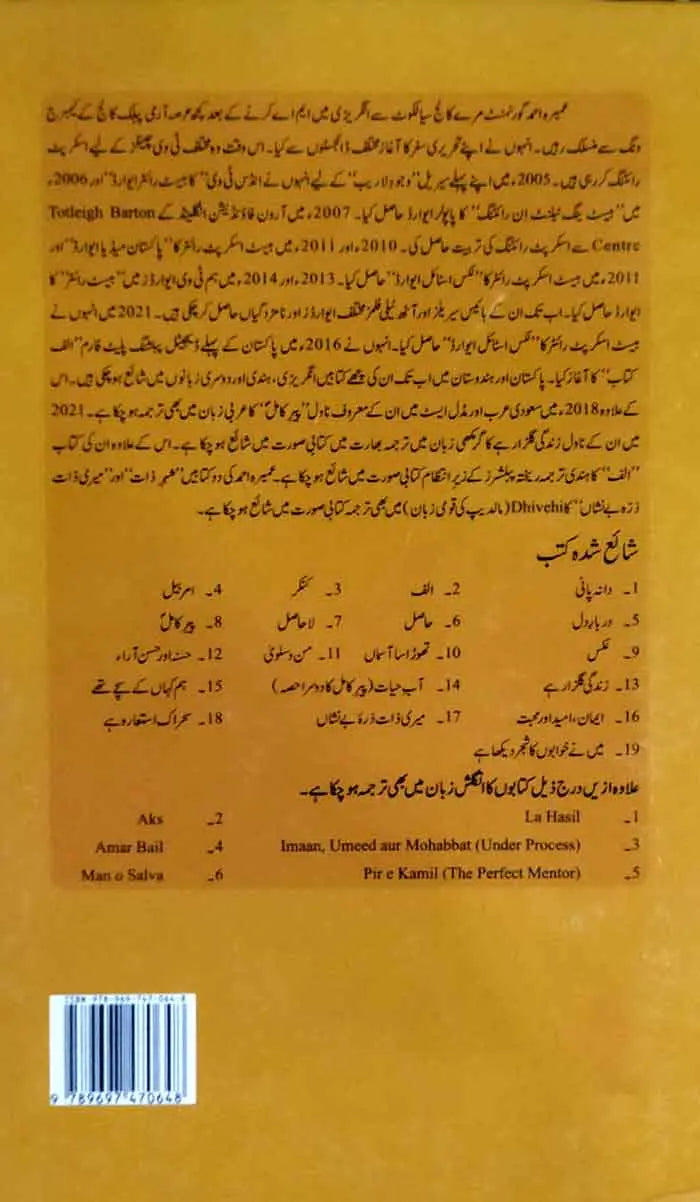 عمیرہ احمد گورنمنٹ مرے کالج سیالکوٹ سے انگریزی میں ایم اے کرنے کے بعد کچھ عرصہ آرمی پبلک کالج کے کیمبرج
ونگ سے منسلک رہیں۔ انہوں نے اپنے تحریری سفر کا آغاز مختلف ڈائجسٹوں سے کیا۔ اس وقت وہ مختلف ٹی وی چینلز کے لیے اسکرپٹ
رائٹنگ کر رہی ہیں۔ 2005ء میں اپنے پہلے سیریل ”وجود لاریب“ کے لیے انہوں نے انڈس ٹی وی ”کا بیسٹ رائٹر ایوارڈ“ اور 2006ء
میں ”بیسٹ ینگ ٹیلنٹ ان رائٹنگ“ کا پاپولر ایوارڈ حاصل کیا۔ 2007ء میں آرون فاؤنڈیشن انگلینڈ کے Totleigh Barton
Centre سے اسکرپٹ رائٹنگ کی تربیت حاصل کی۔ 2010ء اور 2011ء میں بیسٹ اسکرپٹ رائٹر کا ”پاکستان میڈیا ایوارڈ“ اور
2011ء میں بیسٹ اسکرپٹ رائٹر کا ”لکس اسٹائل ایوارڈ“ حاصل کیا۔ 2013ء اور 2014ء میں ہم ٹی وی ایوارڈز میں ”بیسٹ رائٹر“ کا
ایوارڈ حاصل کیا۔ اب تک ان کے بائیس سیریلز اور آٹھ ٹیلی فلمز مختلف ایوارڈز اور نامزدگیاں حاصل کر چکی ہیں۔ 2021 میں انہوں نے
بیسٹ اسکرپٹ رائٹر کا ”لکس اسٹائل ایوارڈ“ حاصل کیا۔ انہوں نے 2016ء میں پاکستان کے پہلے ڈیجیٹل پبلشنگ پلیٹ فارم ”الف
کتاب“ کا آغاز کیا۔ پاکستان اور ہندوستان میں اب تک ان کی چھے کتابیں انگریزی، ہندی اور دوسری زبانوں میں شائع ہو چکی ہیں۔ اس
کے علاوہ 2018ء میں سعودی عرب اور مڈل ایسٹ میں ان کے معروف ناول ”پیر کاملؐ“ کا عربی زبان میں بھی ترجمہ ہو چکا ہے۔ 2021
میں ان کے ناول زندگی گلزار ہے کا گرمکھی زبان میں ترجمہ بھارت میں کتابی صورت میں شائع ہو چکا ہے۔ اس کے علاوہ ان کی کتاب
”الف“ کا ہندی ترجمہ ریختہ پبلشرز کے زیر انتظام کتابی صورت میں شائع ہو چکا ہے۔ عمیرہ احمد کی دو کتابیں ”شہر ذات“ اور ”میری ذات
ذرّہ بے نشاں“ کا Dhivehi (مالدیپ کی قومی زبان) میں بھی ترجمہ کتابی صورت میں شائع ہو چکا ہے۔
شائع شدہ کتب
1۔ دانہ پانی 2۔ الف 3۔ کنکر 4۔ امر بیل
5۔ دربارِ دل 6۔ حاصل 7۔ لاحاصل 8۔ پیر کاملؐ
9۔ عکس 10۔ تھوڑا سا آسماں 11۔ من و سلویٰ 12۔ حسنہ اور حسن آراء
13۔ زندگی گلزار ہے 14۔ آب حیات (پیر کامل کا دوسرا حصہ) 15۔ ہم کہاں کے سچے تھے
16۔ ایمان، امید اور محبت 17۔ میری ذات ذرۂ بے نشاں 18۔ سحر اک استعارہ ہے
19۔ میں نے خوابوں کا شجر دیکھا ہے
علاوہ ازیں درج ذیل کتابوں کا انگلش زبان میں بھی ترجمہ ہو چکا ہے۔
1۔ La Hasil 2۔ Aks
3۔ Imaan, Umeed aur Mohabbat (Under Process) 4۔ Amar Bail
5۔ Pir e Kamil (The Perfect Mentor) 6۔ Man o Salva
ISBN 978-969-747-064-8
9 789697 470648